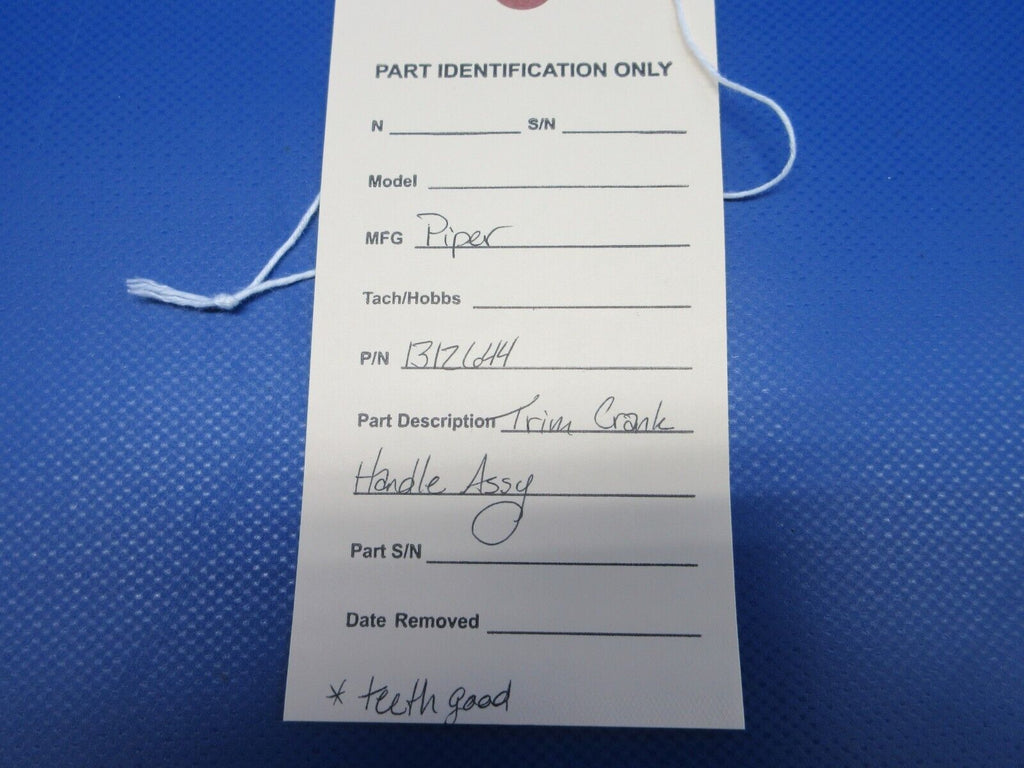 PART IDENTIFICATION ONLY
N S/N
Model
MFG Piper
Tach/Hobbs
P/N
Part Description Trim Crank
Handle Assy
Part S/N
Date Removed
* teeth good